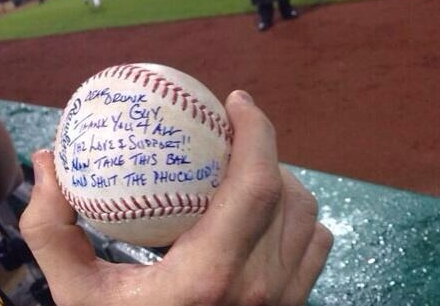 DEAR DRUNK
GUY,
THANK YOU 4 ALL
THE LOVE & SUPPORT!!
NOW TAKE THIS BALL
AND SHUT THE PHUCK UP!!
Rawlings